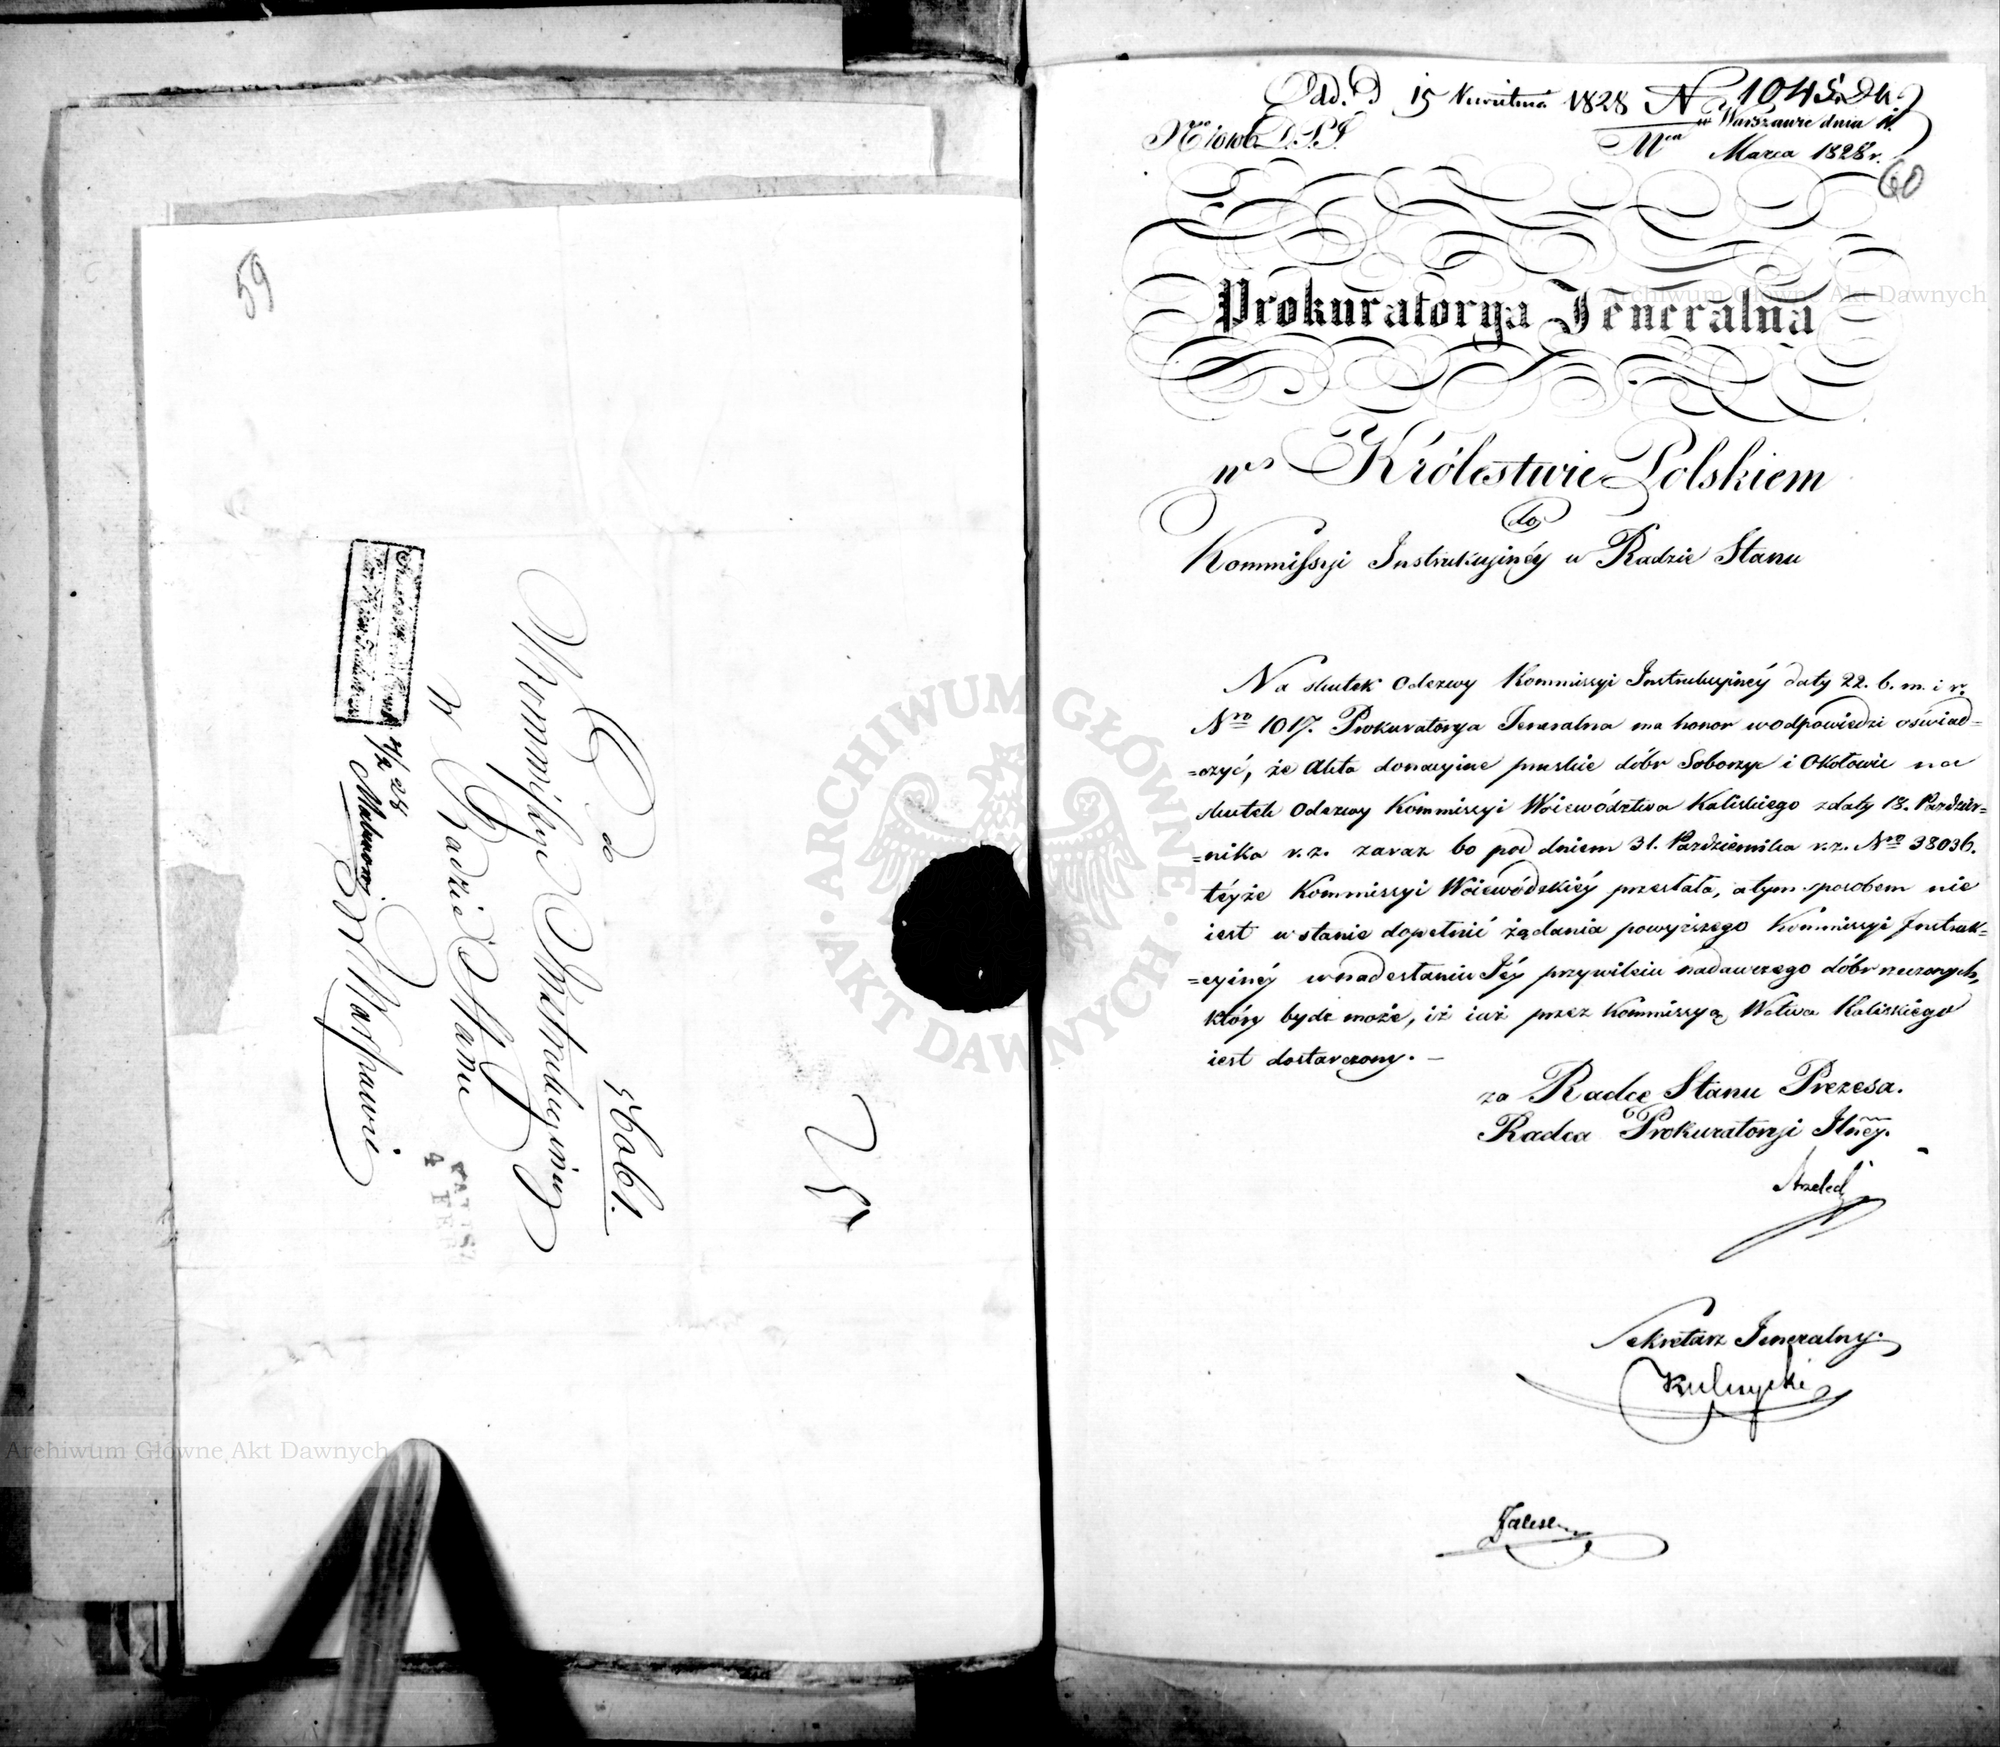 59
do
Kommissyi Instrukcyiney
w Radzie Stanu
w Warszawie
Odd. d 15 Kwietnia 1828 N 1045
w Warszawie dnia
Marca 1828 r.
60
Prokuratorya Jeneralna
w Królestwie Polskiem
do
Kommissyi Instrukcyinéy w Radzie Stanu
Na skutek Odezwy Kommissyi Instrukcyinéy daty 22. b. m. i r.
Nro 1017. Prokuratorya Jeneralna ma honor w odpowiedzi oświad=
=czyć, że Akta donacyine pruskie dóbr Soborzyc i Okołowic na
skutek Odezwy Kommissyi Woiewództwa Kaliskiego z daty 18. Paździer=
=nika r. z. zaraz bo pod dniem 31. Października r. z. Nro 38036.
téyże Kommissyi Woiewódzkiéy przesłała, a tym sposobem nie
iest w stanie dopełnić żądania powyższego Kommissyi Instruk=
=cyinéy w nadesłaniu Jéy przywileiu nadawczego dóbr rzeczonych,
który bydź może, iż iuż przez Kommissyą Wotwa Kaliskiego
iest dostarczony. –
za Radcę Stanu Prezesa.
Radca Prokuratoryi Jlnéy.
Sekretarz Jeneralny.
Kulczycki
Archiwum Główne Akt Dawnych
ARCHIWUM GŁÓWNE
· AKT DAWNYCH ·
Archiwum Główne Akt Dawnych